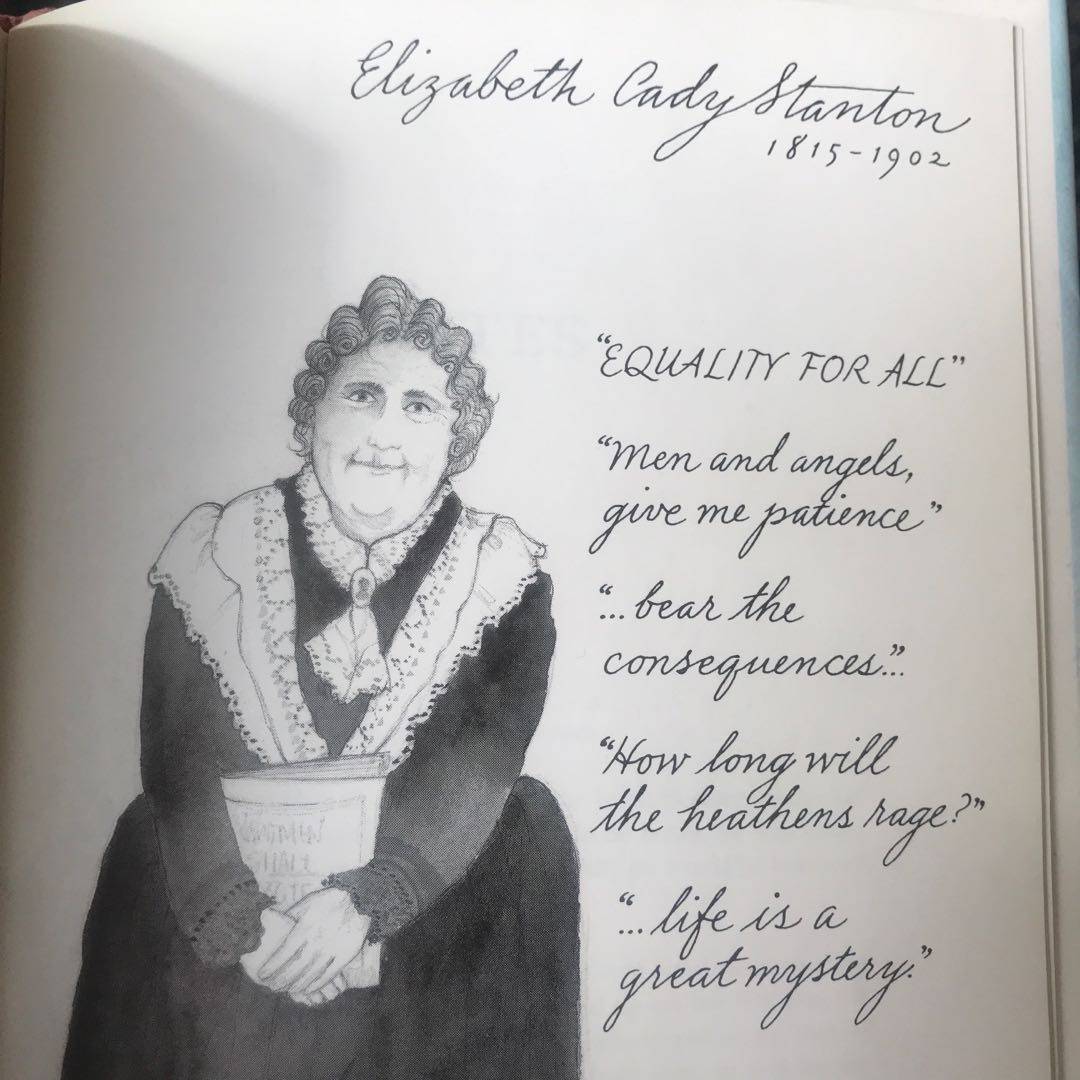 Elizabeth Cady Stanton
1815-1902
"EQUALITY FOR ALL"
"Men and angels,
give me patience"
"...bear the
consequences..."
"How long will
the heathens rage?"
"...life is a
great mystery."